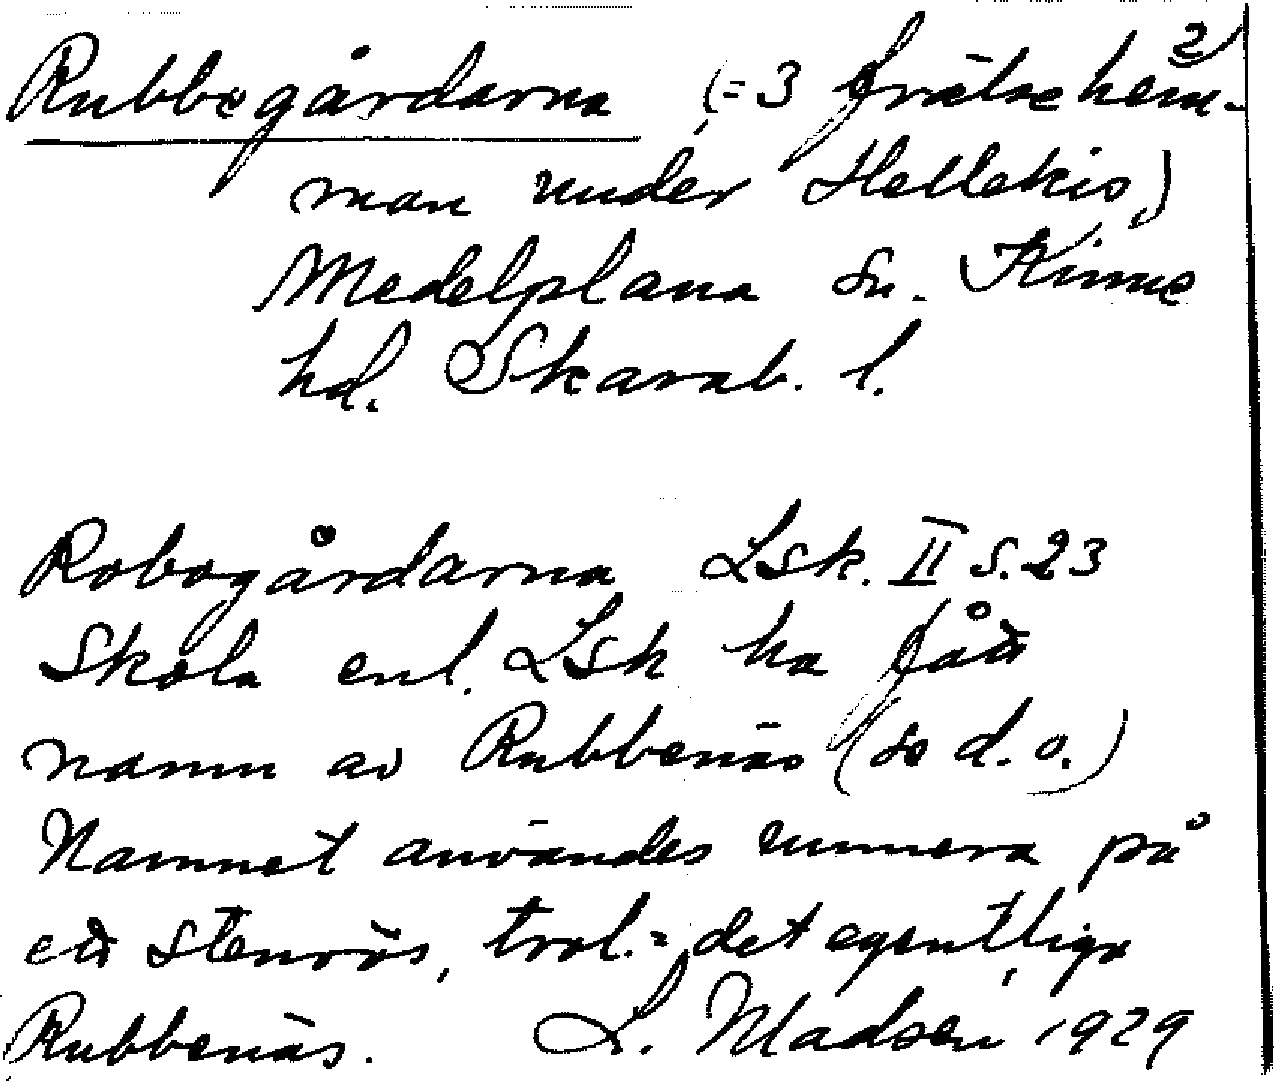 2)
Rubbegårdarna (= 3 frälsehem-
man under Hellekis,)
Medelplana sn. Kinne
hd. Skarab. l.
Robogårdarna Lsk. II s. 23
Skola enl. Lsk ha fått
namn av Rubbenäs (se d.o.)
Namnet användes numera på
ett stenrös, trol. = det egentliga
Rubbenäs. L. Madsen 1929